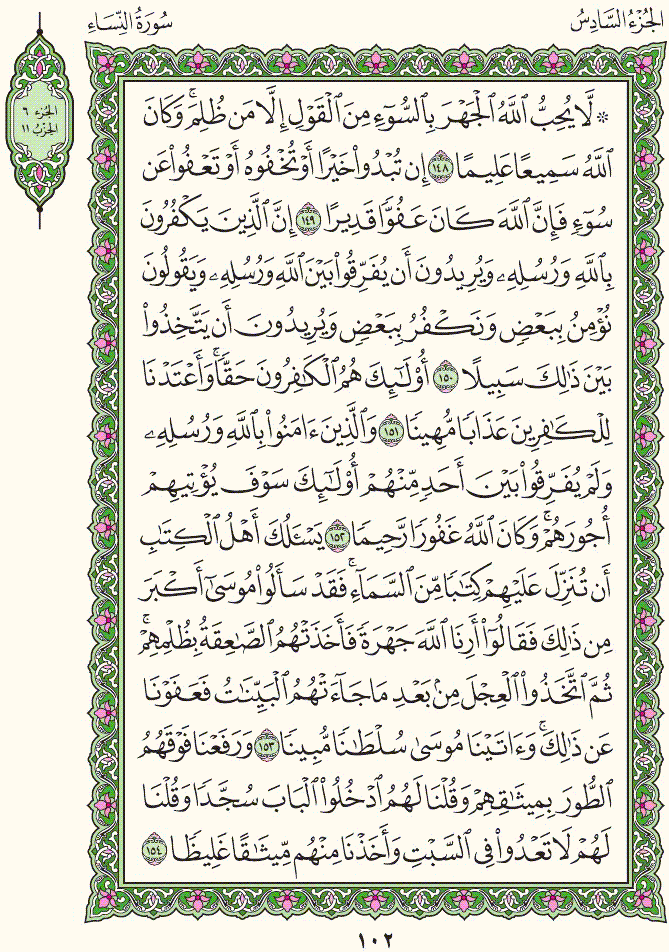 الجُزْءُ السَّادِسُ
سُورَةُ النِّسَاءِ
الجزء ٦
الحزب ١١
* لَّا يُحِبُّ ٱللَّهُ ٱلْجَهْرَ بِٱلسُّوٓءِ مِنَ ٱلْقَوْلِ إِلَّا مَن ظُلِمَۚ وَكَانَ
ٱللَّهُ سَمِيعًا عَلِيمًا ١٤٨ إِن تُبْدُوا۟ خَيْرًا أَوْ تُخْفُوهُ أَوْ تَعْفُوا۟ عَن
سُوٓءٍ فَإِنَّ ٱللَّهَ كَانَ عَفُوًّا قَدِيرًا ١٤٩ إِنَّ ٱلَّذِينَ يَكْفُرُونَ
بِٱللَّهِ وَرُسُلِهِۦ وَيُرِيدُونَ أَن يُفَرِّقُوا۟ بَيْنَ ٱللَّهِ وَرُسُلِهِۦ وَيَقُولُونَ
نُؤْمِنُ بِبَعْضٍ وَنَكْفُرُ بِبَعْضٍ وَيُرِيدُونَ أَن يَتَّخِذُوا۟
بَيْنَ ذَٰلِكَ سَبِيلًا ١٥٠ أُو۟لَٰٓئِكَ هُمُ ٱلْكَٰفِرُونَ حَقًّاۚ وَأَعْتَدْنَا
لِلْكَٰفِرِينَ عَذَابًا مُّهِينًا ١٥١ وَٱلَّذِينَ ءَامَنُوا۟ بِٱللَّهِ وَرُسُلِهِۦ
وَلَمْ يُفَرِّقُوا۟ بَيْنَ أَحَدٍ مِّنْهُمْ أُو۟لَٰٓئِكَ سَوْفَ يُؤْتِيهِمْ
أُجُورَهُمْۚ وَكَانَ ٱللَّهُ غَفُورًا رَّحِيمًا ١٥٢ يَسْـَٔلُكَ أَهْلُ ٱلْكِتَٰبِ
أَن تُنَزِّلَ عَلَيْهِمْ كِتَٰبًا مِّنَ ٱلسَّمَآءِۚ فَقَدْ سَأَلُوا۟ مُوسَىٰٓ أَكْبَرَ
مِن ذَٰلِكَ فَقَالُوٓا۟ أَرِنَا ٱللَّهَ جَهْرَةً فَأَخَذَتْهُمُ ٱلصَّٰعِقَةُ بِظُلْمِهِمْۚ
ثُمَّ ٱتَّخَذُوا۟ ٱلْعِجْلَ مِنۢ بَعْدِ مَا جَآءَتْهُمُ ٱلْبَيِّنَٰتُ فَعَفَوْنَا
عَن ذَٰلِكَۚ وَءَاتَيْنَا مُوسَىٰ سُلْطَٰنًا مُّبِينًا ١٥٣ وَرَفَعْنَا فَوْقَهُمُ
ٱلطُّورَ بِمِيثَٰقِهِمْ وَقُلْنَا لَهُمُ ٱدْخُلُوا۟ ٱلْبَابَ سُجَّدًا وَقُلْنَا
لَهُمْ لَا تَعْدُوا۟ فِى ٱلسَّبْتِ وَأَخَذْنَا مِنْهُم مِّيثَٰقًا غَلِيظًا ١٥٤
١٠٢